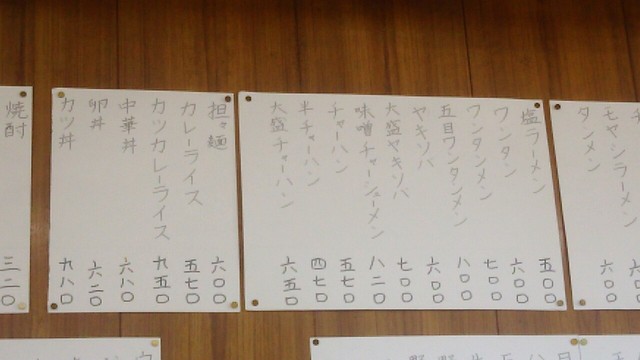 モヤシラーメン 六〇〇
タンメン 六〇〇
塩ラーメン 五〇〇
ワンタン 六〇〇
ワンタンメン 七〇〇
五目ワンタンメン 八〇〇
ヤキソバ 六〇〇
大盛ヤキソバ 七〇〇
味噌チャーシューメン 八二〇
チャーハン 五七〇
半チャーハン 四七〇
大盛チャーハン 六五〇
担々麺 六〇〇
カレーライス 五七〇
カツカレーライス 九五〇
中華丼 六八〇
卵丼 六二〇
カツ丼 九八〇
焼酎 三二〇